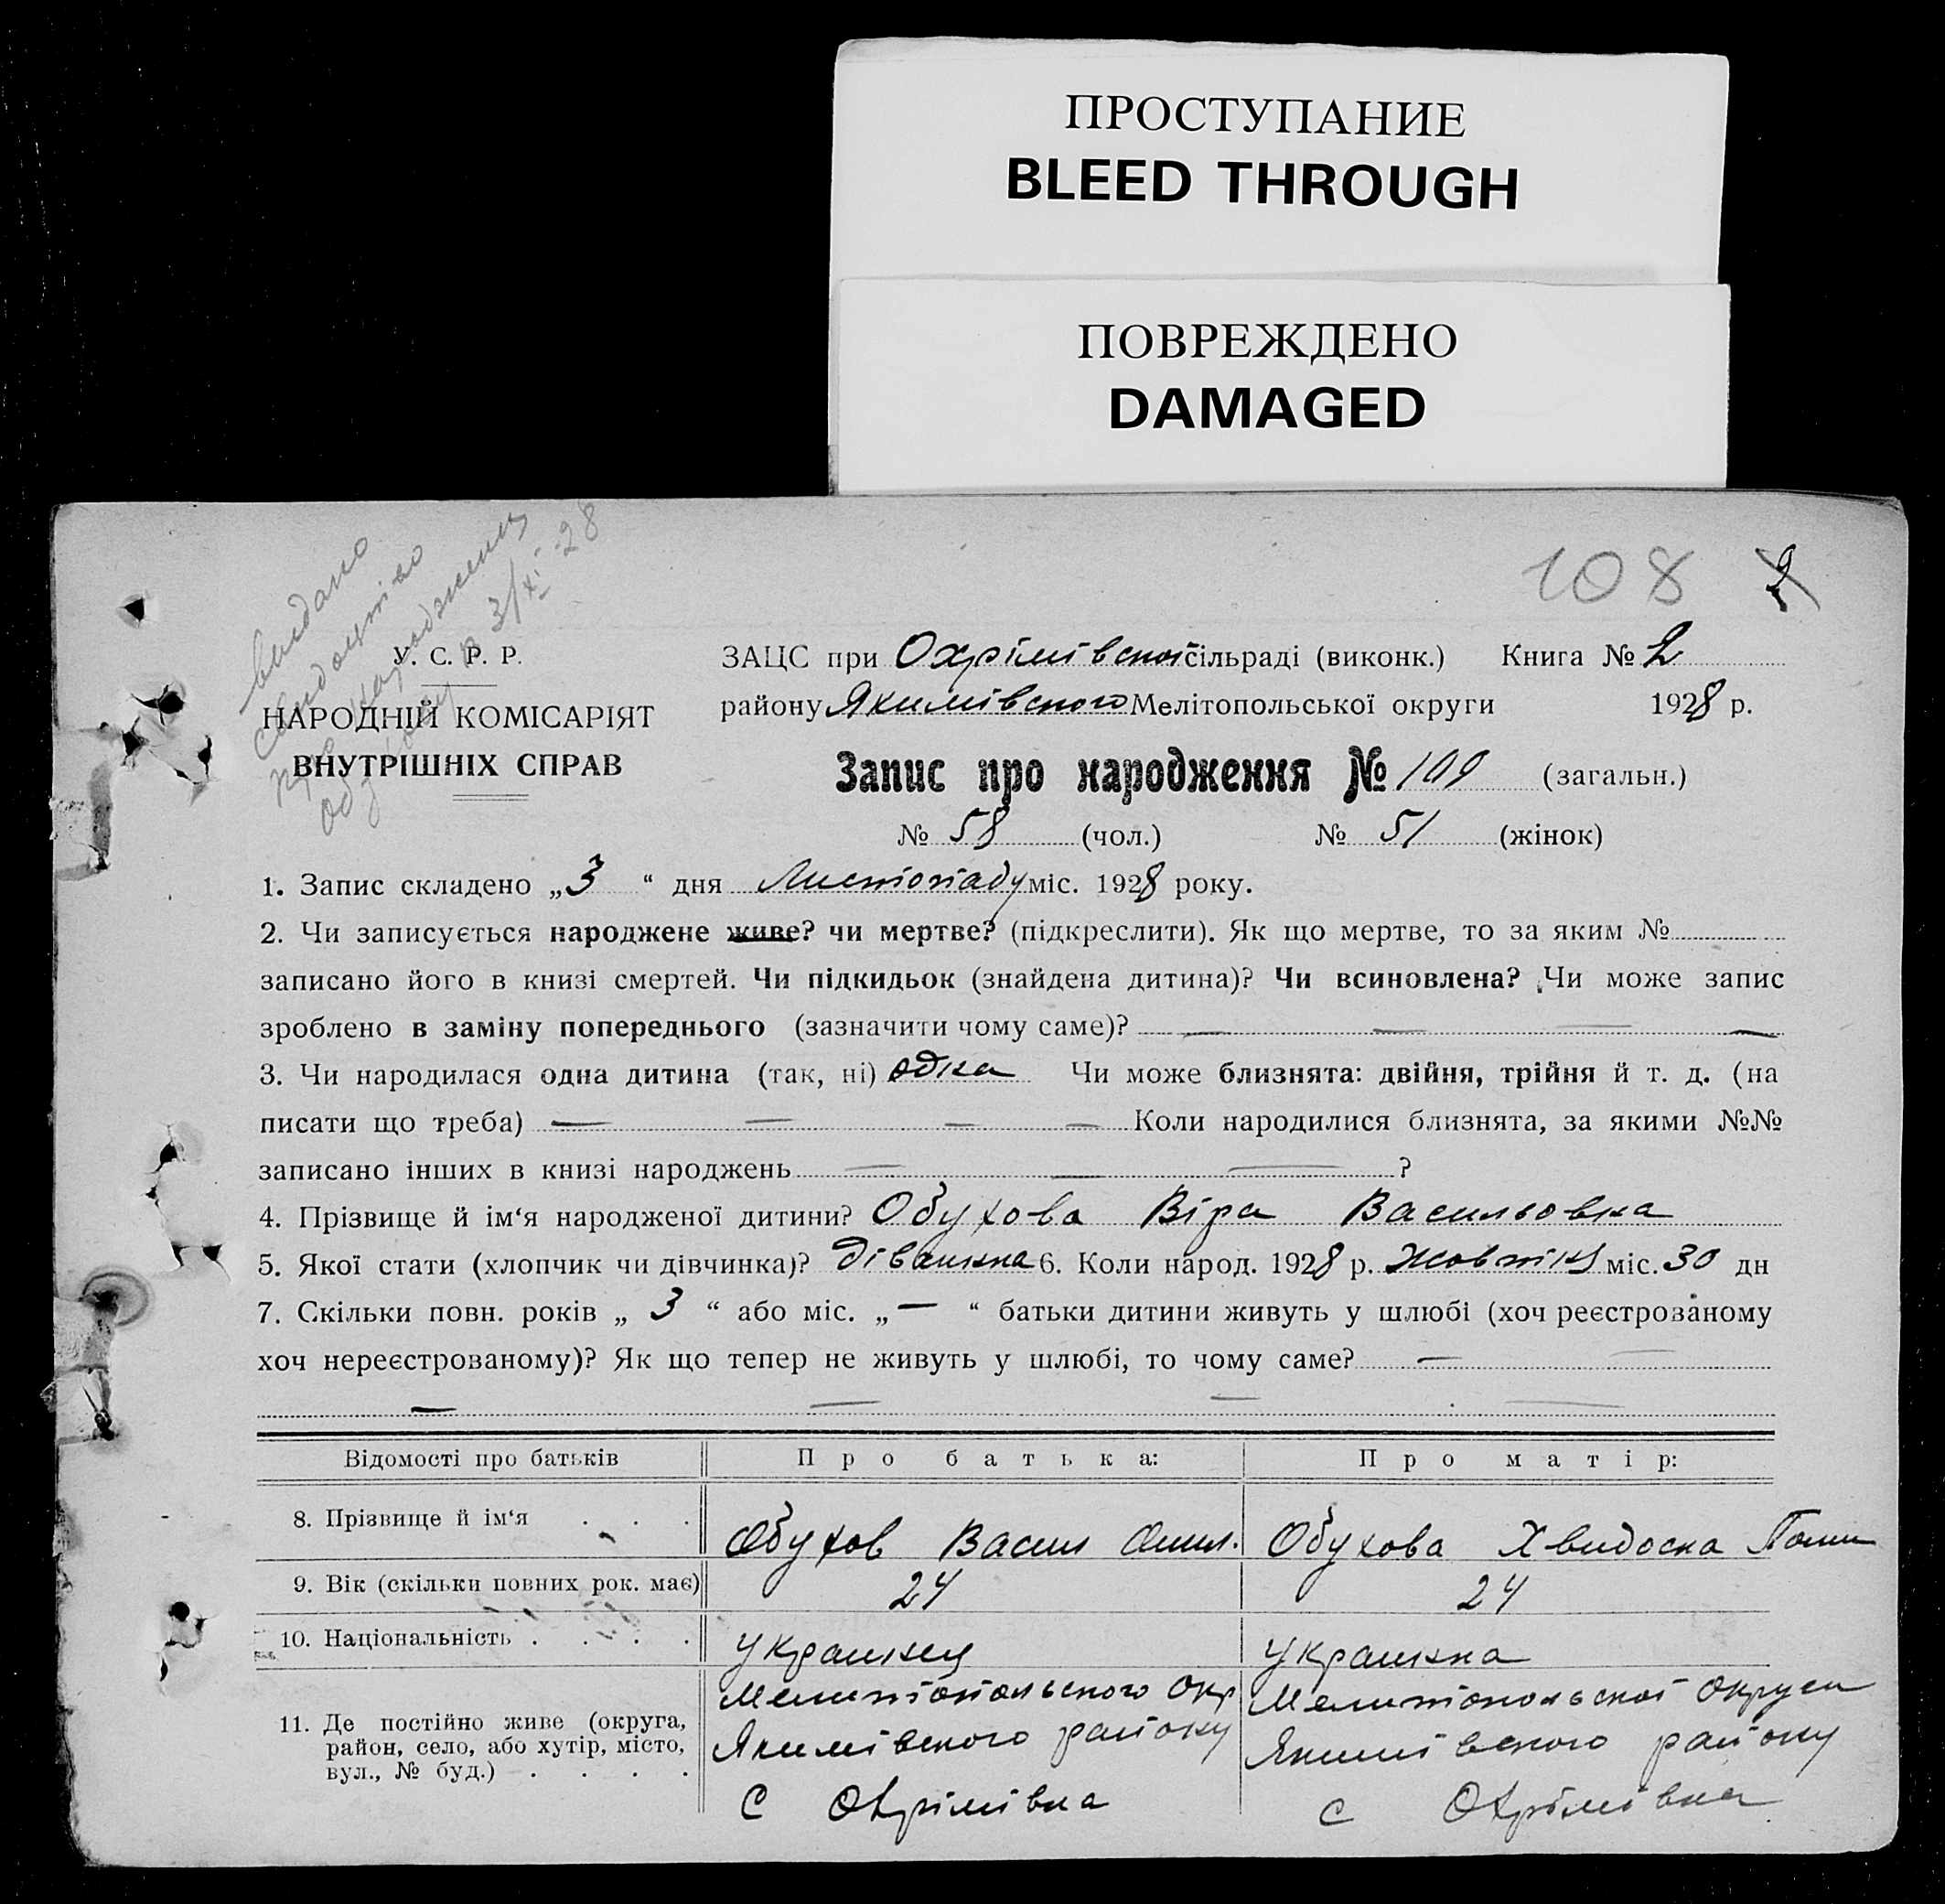 ПРОСТУПАНИЕ
BLEED THROUGH
ПОВРЕЖДЕНО
DAMAGED
видано
свидоцтво
про народження
3/XI-28
108 2
У. С. Р. Р.
НАРОДНІЙ КОМІСАРІЯТ
ВНУТРІШНІХ СПРАВ
ЗАЦС при Охрімівской сільраді (виконк.) Книга № 2
району Якимівського Мелітопольської округи 1928 р.
Запис про народження № 109 (загальн.)
№ 58 (чол.) № 51 (жінок)
1. Запис складено „3“ дня Листопаду міс. 1928 року.
2. Чи записується народжене живе? чи мертве? (підкреслити). Як що мертве, то за яким №
записано його в книзі смертей. Чи підкидьок (знайдена дитина)? Чи всиновлена? Чи може запис
зроблено в заміну попереднього (зазначити чому саме)? — — — —
3. Чи народилася одна дитина (так, ні) одна Чи може близнята: двійня, трійня й т. д. (на
писати що треба) — — — — Коли народилися близнята, за якими №№
записано інших в книзі народжень — — — ?
4. Прізвище й ім‘я народженої дитини? Обухова Віра Васильовна
5. Якої стати (хлопчик чи дівчинка)? дівчинка 6. Коли народ. 1928 р. Жовтня міс. 30 дн
7. Скільки повн. років „ 3 “ або міс. „ — “ батьки дитини живуть у шлюбі (хоч реєстрованому
хоч нереєстрованому)? Як що тепер не живуть у шлюбі, то чому саме? — —
— — — —
Відомості про батьків Про батька: Про матір:
8. Прізвище й ім‘я . . . Обухов Васил Обухова Хвидоска
9. Вік (скільки повних рок. має) 24 24
10. Національність . . . . Украинец Украинка
11. Де постійно живе (округа, район, село, або хутір, місто, вул., № буд.) . . . .
Мелитопольского Окр Мелитопольскоі Округи
Якимівского району Якимівского району
С Охрімівка С Охрімівка